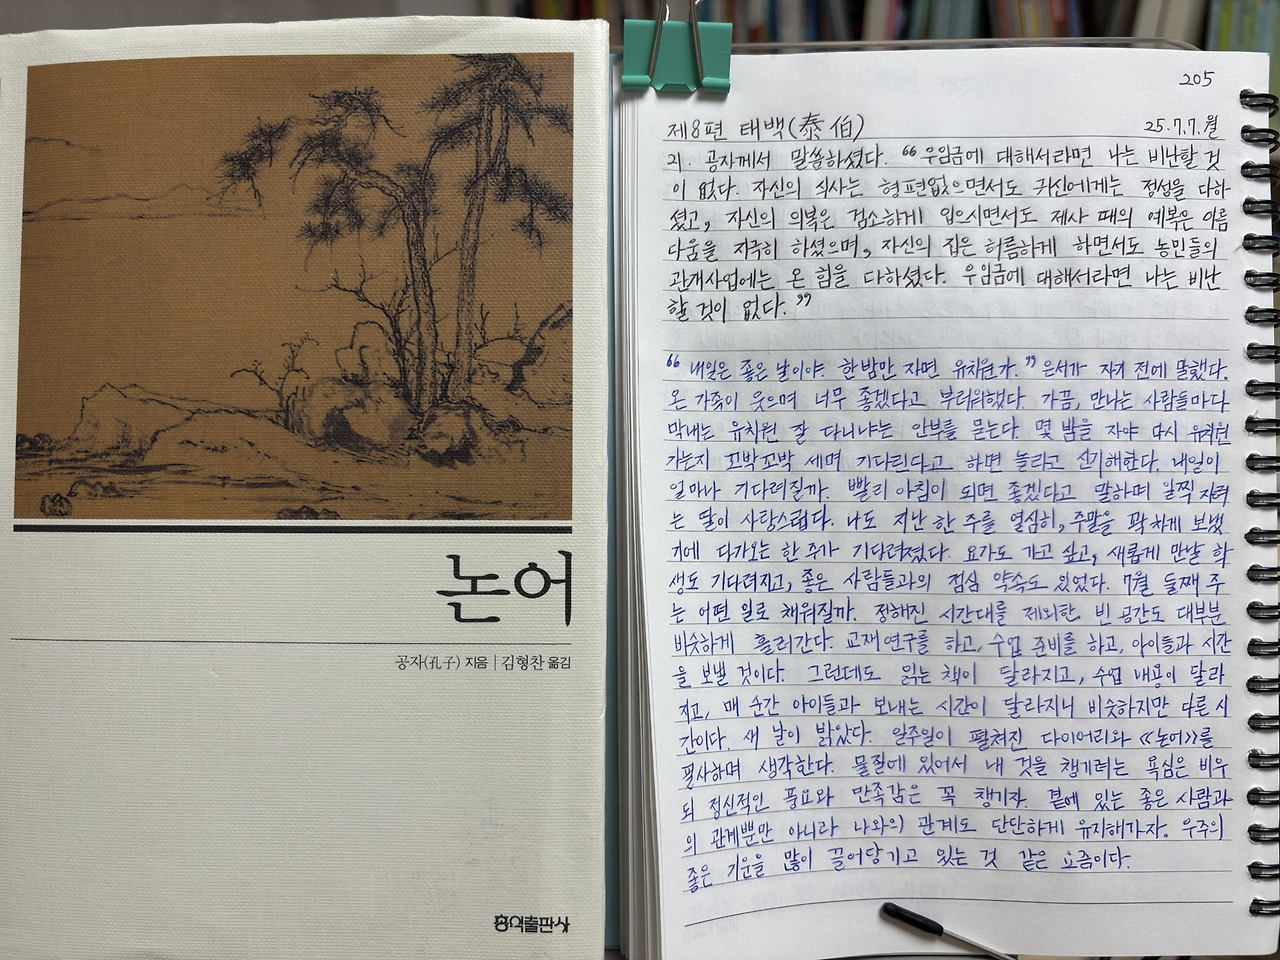 논어
공자(孔子) 지음 | 김형찬 옮김
홍익출판사
205
제8편 태백(泰伯) 25.7.7.월
21. 공자께서 말씀하셨다. “우임금에 대해서라면 나는 비난할 것
이 없다. 자신의 식사는 형편없으면서도 귀신에게는 정성을 다하
셨고, 자신의 의복은 검소하게 입으시면서도 제사 때의 예복은 아름
다움을 지극히 하셨으며, 자신의 집은 허름하게 하면서도 농민들의
관개사업에는 온 힘을 다하셨다. 우임금에 대해서라면 나는 비난
할 것이 없다.”
“내일은 좋은 날이야. 한 밤만 자면 유치원가.” 은서가 자기 전에 말했다.
온 가족이 웃으며 너무 좋겠다고 부러워했다. 가끔, 만나는 사람들마다
막내는 유치원 잘 다니냐는 안부를 묻는다. 몇 밤을 자야 다시 유치원
가는지 꼬박꼬박 세며 기다린다고 하면 놀라고 신기해한다. 내일이
얼마나 기다려질까. 빨리 아침이 되면 좋겠다고 말하며 일찍 자려
는 딸이 사랑스럽다. 나도 지난 한 주를 열심히, 주말을 꽉 차게 보냈
기에 다가오는 한 주가 기다려졌다. 요가도 가고 싶고, 새롭게 만날 학
생도 기다려지고, 좋은 사람들과의 점심 약속도 있었다. 7월 둘째 주
는 어떤 일로 채워질까. 정해진 시간대를 제외한 빈 공간도 대부분
비슷하게 흘러간다. 교재연구를 하고, 수업 준비를 하고, 아이들과 시간
을 보낼 것이다. 그런데도 읽는 책이 달라지고, 수업 내용이 달라
지고, 매 순간 아이들과 보내는 시간이 달라지니 비슷하지만 다른 시
간이다. 새 날이 밝았다. 일주일이 펼쳐진 다이어리와 《논어》를
필사하며 생각한다. 물질에 있어서 내 것을 챙기려는 욕심은 비우
되 정신적인 풍요와 만족감은 꼭 챙기자. 곁에 있는 좋은 사람과
의 관계뿐만 아니라 나와의 관계도 단단하게 유지해가자. 우주의
좋은 기운을 많이 끌어당기고 있는 것 같은 요즘이다.